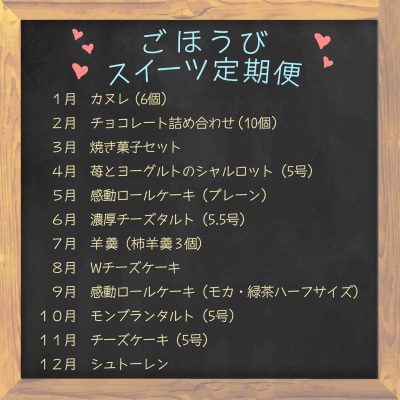 ごほうび
スイーツ定期便
1月 カヌレ (6個)
2月 チョコレート詰め合わせ (10個)
3月 焼き菓子セット
4月 苺とヨーグルトのシャルロット (5号)
5月 感動ロールケーキ (プレーン)
6月 濃厚チーズタルト (5.5号)
7月 羊羹 (柿羊羹3個)
8月 Wチーズケーキ
9月 感動ロールケーキ (モカ・緑茶ハーフサイズ)
10月 モンブランタルト (5号)
11月 チーズケーキ (5号)
12月 シュトーレン